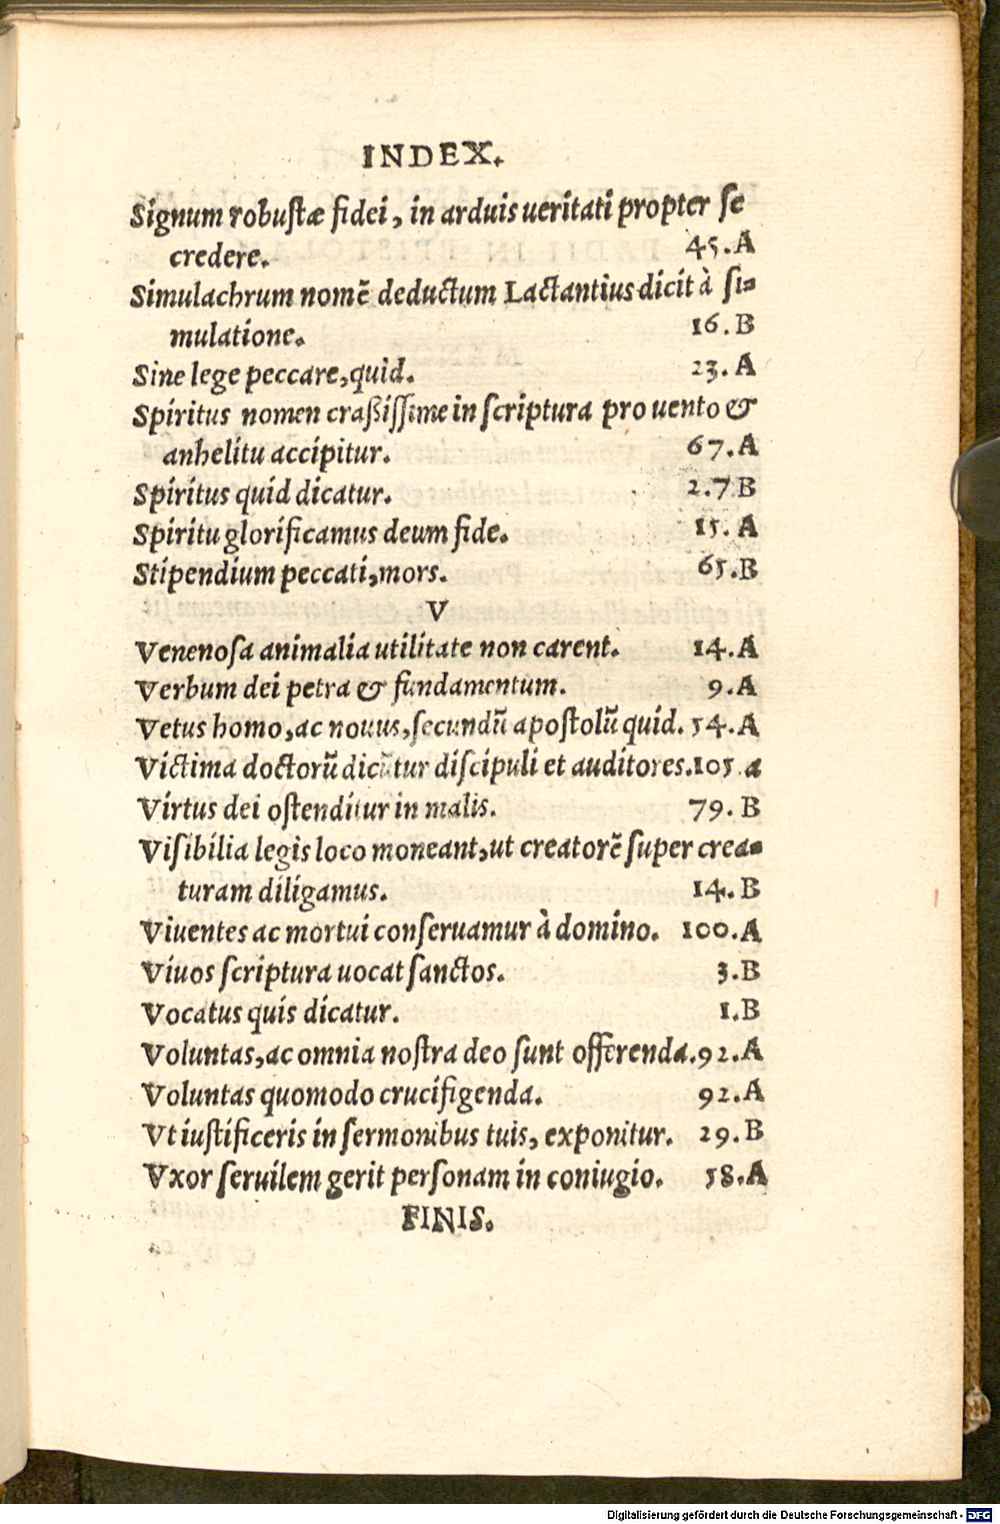 INDEX.
Signum robustæ fidei, in arduis ueritati propter se
credere. 45.A
Simulachrum nomē deductum Lactantius dicit à si-
mulatione. 16.B
Sine lege peccare, quid. 23.A
Spiritus nomen craßissime in scriptura pro uento &
anhelitu accipitur. 67.A
Spiritus quid dicatur. 2.7 B
Spiritu glorificamus deum fide. 15.A
Stipendium peccati, mors. 65.B
V
Venenosa animalia utilitate non carent. 14.A
Verbum dei petra & fundamentum. 9.A
Vetus homo, ac nouus, secundū apostolū quid. 54.A
Victima doctorū dicūtur discipuli et auditores. 105.a
Virtus dei ostenditur in malis. 79.B
Visibilia legis loco moneant, ut creatorē super crea-
turam diligamus. 14.B
Viuentes ac mortui conseruamur à domino. 100.A
Viuos scriptura uocat sanctos. 3.B
Vocatus quis dicatur. 1.B
Voluntas, ac omnia nostra deo sunt offerenda. 92.A
Voluntas quomodo crucifigenda. 92.A
Vt iustificeris in sermonibus tuis, exponitur. 29.B
Vxor seruilem gerit personam in coniugio. 58.A
FINIS.
Digitalisierung gefördert durch die Deutsche Forschungsgemeinschaft - DFG